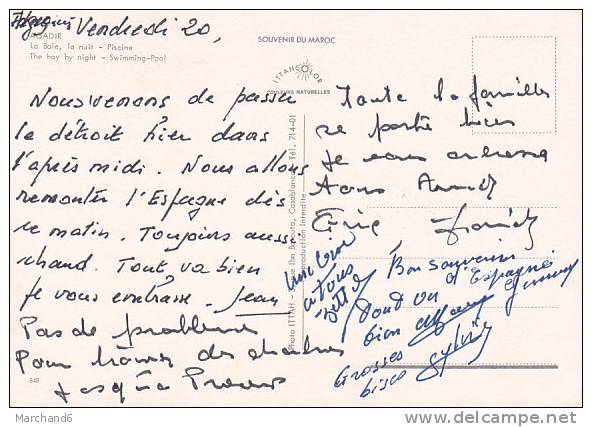 Vendredi 20,
AGADIR
La Baie, la nuit - Piscine
The bay by night - Swimming-Pool
SOUVENIR DU MAROC
ITTAH COLOR
COULEURS NATURELLES
Nous venons de passer
le détroit hier dans
l'après midi. Nous allons
remonter l'Espagne dès
ce matin. Toujours aussi
chaud. Tout va bien
je vous embrasse. Jean
Pas de problème
pour trouver des chambres
jusqu'à
Toute la famille
se porte bien
Je vous embrasse
tous
Eric
Bon souvenir
d'Espagne
tout va
bien
Grosses
bises Sylvie
à tous
Photo ITTAH - Rue Ibn Batouta, Casablanca - Tél. 714-01
Reproduction Interdite
848
Marchand6
www.delcampe.net